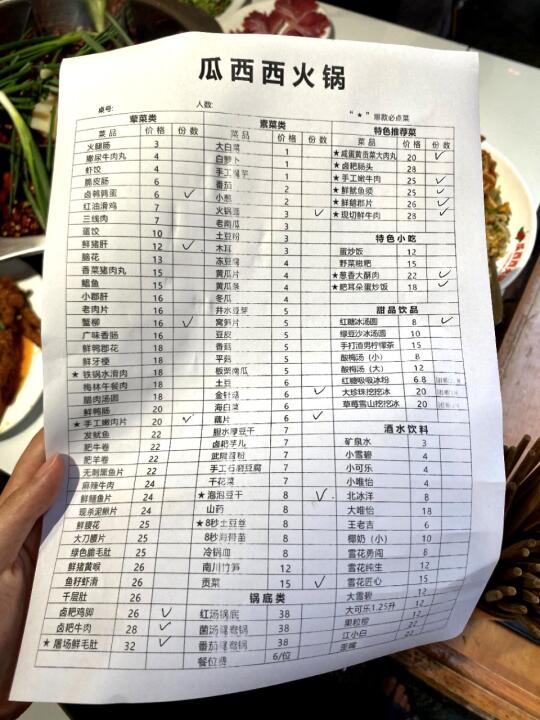 瓜西西火锅
桌号:
人数:
"★"爆款必点菜
荤菜类
菜品 价格 份数
火腿肠 3
撒尿牛肉丸 4
虾饺 4
脆皮肠 6
卤鹌鹑蛋 6 ✓
红油滑鸡 7
三线肉 7
蛋饺 10
鲜猪肝 12 ✓
脑花 13
香菜猪肉丸 15
鲳鱼 15
小郡肝 16
老肉片 16
蟹柳 16 ✓
广味香肠 16
鲜鸭郡花 18
鲜牙梗 18
★铁锅水滑肉 18
梅林午餐肉 18
腊肉汤圆 18
鲜鸭肠 20
★手工嫩肉片 20 ✓
发鱿鱼 22
肥牛卷 22
肥羊卷 22
无刺黑鱼片 22
麻辣牛肉 24
鲜鳝鱼片 24
现杀泥鳅片 24
鲜腰花 25
大刀腰片 25
绿色脆毛肚 25
鲜猪黄喉 26
鱼籽虾滑 26
千层肚 26
卤耙鸡脚 26 ✓
卤耙牛肉 28 ✓
★屠场鲜毛肚 32 ✓
素菜类
菜品 价格 份数
大白菜 1
白萝卜 1
番茄 2
小葱 2
3 ✓
老南瓜 3
土豆粉 3
木耳 3
冻豆腐 4
黄瓜片 4
黄瓜条 4
冬瓜 4
井水豆芽 5
窝笋片 5
豆皮 5
香菇 5
平菇 5
板栗南瓜 5
土豆 6
金针菇 6 ✓
海白菜 6
藕片 6 ✓
胆水厚豆干 7
卤耙芋儿 7
武隆苕粉 7
手工石磨豆腐 7
千花菜 7
★泡泡豆干 8 ✓
山药 8
★8秒土豆丝 8
8秒海带苗 8
冷锅血 8
南川竹笋 12
贡菜 15 ✓
锅底类
红汤锅底 38
菌汤鸳鸯锅 38
番茄鸳鸯锅 38
餐位费 6/位
特色推荐菜
菜品 价格 份数
★咸蛋黄贡菜大肉丸 20 ✓
★卤耙肠头 28
★手工嫩牛肉 25 ✓
★鲜鱿鱼须 25 ✓
★鲜鳝郡片 26 ✓
★现切鲜牛肉 28 ✓
特色小吃
蛋炒饭 12
野菜糍粑 15
★葱香大酥肉 22 ✓
★耙耳朵蛋炒饭 18 ✓
甜品饮品
红糖冰汤圆 8 ✓
绿豆沙冰汤圆 10
手打渣男柠檬茶 15
酸梅汤（小） 8
酸梅汤（大） 12
红糖吸吸冰粉 6.8
大珍珠挖挖冰 20
草莓雪山挖挖冰 20
酒水饮料
矿泉水 3
小雪碧 4
小可乐 4
小唯怡 4
北冰洋 8
大唯怡 18
王老吉 6
椰奶（小） 10
雪花勇闯 8
雪花纯生 12
雪花匠心 15
大雪碧 12
大可乐1.25升 12
果粒橙
江小白 22
歪嘴